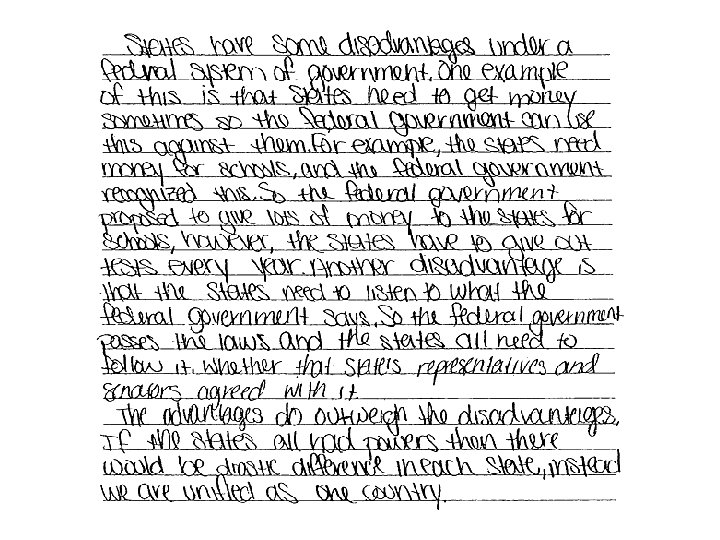 States have some disadvantages under a
federal system of government. One example
of this is that States need to get money
sometimes so the federal government can use
this against them. For example, the states need
money for schools, and the federal government
recognized this. So the federal government
proposed to give lots of money to the states for
schools, however, the states have to give out
tests every year. Another disadvantage is
that the states need to listen to what the
federal government says. So the federal government
passes the laws and the states all need to
follow it, whether that state's representatives and
senators agreed with it.
The advantages do outweigh the disadvantages.
If the states all had powers then there
would be drastic difference in each state, instead
we are unified as one country.